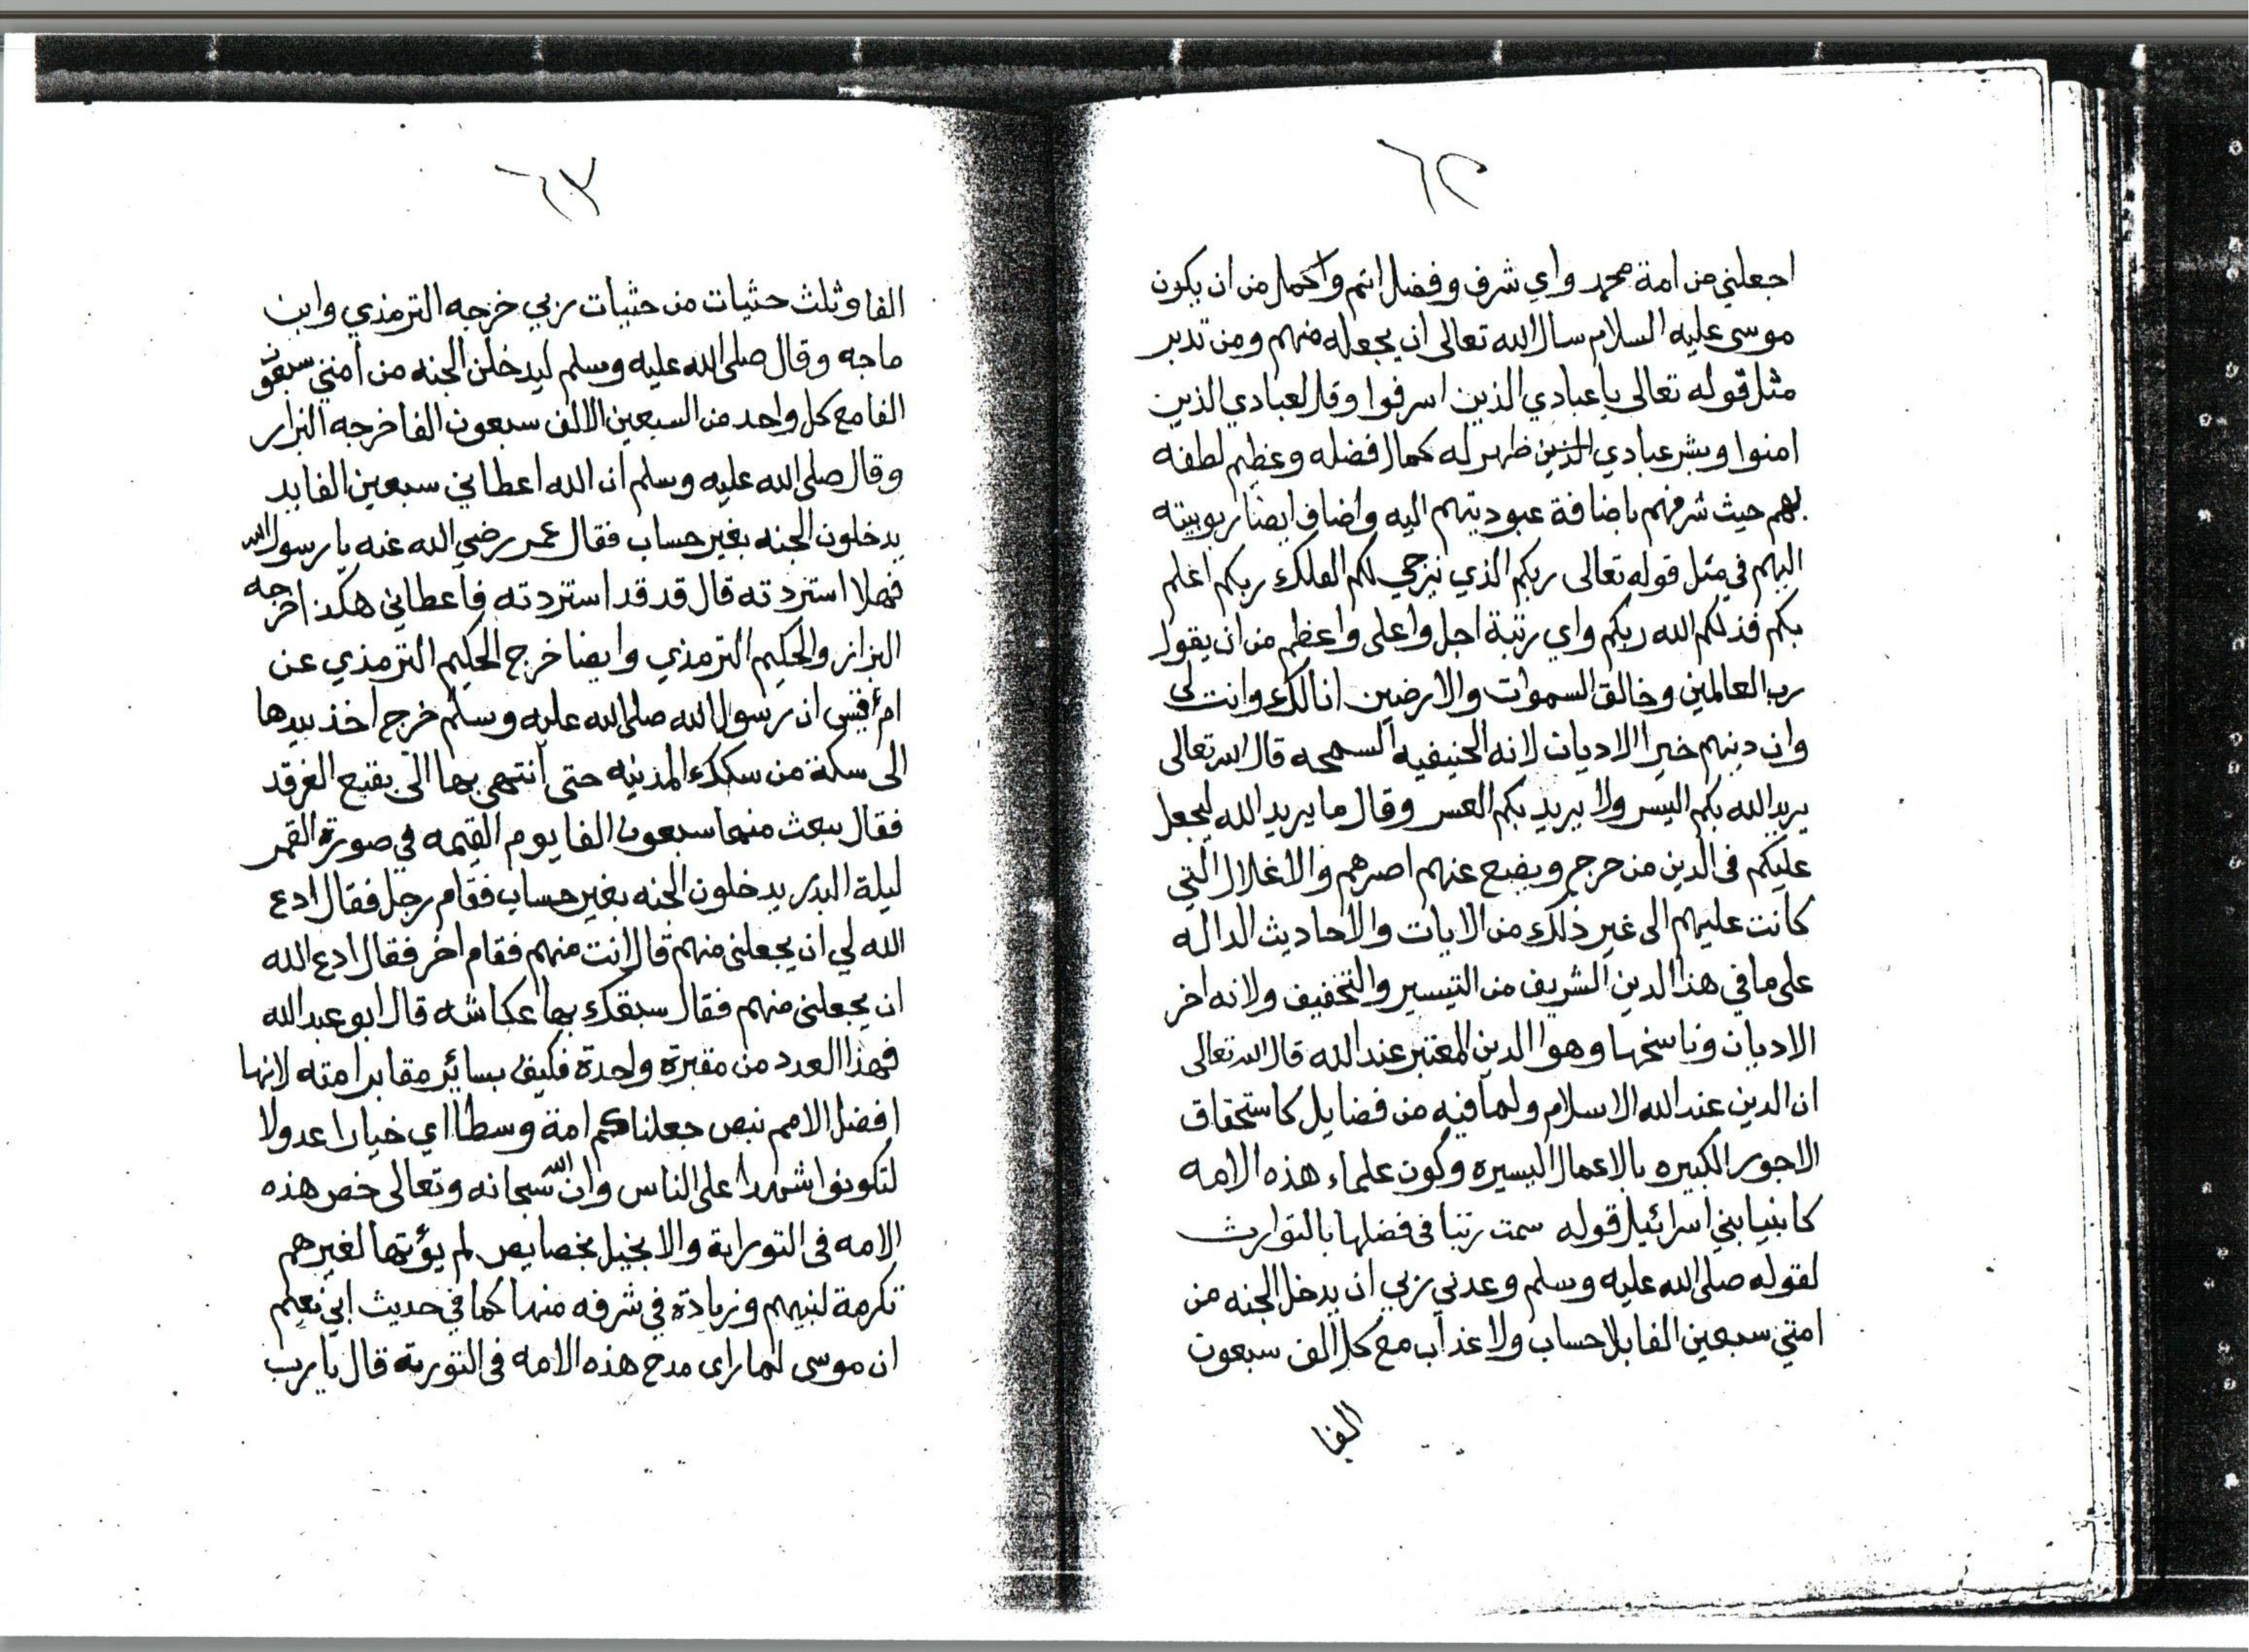 ٦٢
اجعلني من امة محمد واي شرف وفضل اتم واكمل من ان يكون
موسى عليه السلام سال الله تعالى ان يجعله منهم ومن تدبر
مثل قوله تعالى يا عبادي الذين اسرفوا وقل لعبادي الذين
امنوا وبشر عبادي الذين ظهر له كمال فضله وعظيم لطفه
بهم حيث شرفهم باضافة عبوديتهم اليه واضاف ايضا ربوبيته
اليهم في مثل قوله تعالى ربكم الذي يزجي لكم الفلك ربكم اعلم
بكم فذلكم الله ربكم واي رتبة اجل واعلى واعظم من ان يقول
رب العالمين وخالق السموات والارضين انا لك وانت لى
وان دينهم خير الاديان لانه الحنيفيه السمحه قال الله تعالى
يريد الله بكم اليسر ولا يريد بكم العسر وقال ما يريد الله ليجعل
عليكم فى الدين من حرج ويضع عنهم اصرهم والاغلال التي
كانت عليهم الى غير ذلك من الايات والاحاديث الداله
على ما في هذا الدين الشريف من التيسير والتخفيف ولانه اخر
الاديان وناسخها وهو الدين المعتبر عند الله قال الله تعالى
ان الدين عند الله الاسلام ولما فيه من فضايل كاستحقاق
الاجور الكبيره بالاعمال اليسيرة وكون علماء هذه الامه
كانبيا بني اسرائيل قوله سمت رتبا فى فضلها بالتوارث
لقوله صلى الله عليه وسلم وعدني ربي ان يدخل الجنه من
امتي سبعين الفا بلا حساب ولا عذاب مع كل الف سبعون
الفا
٦٣
الفا وثلث حثيات من حثيات ربي خرجه الترمذي وابن
ماجه وقال صلى الله عليه وسلم ليدخلن الجنه من امتي سبعون
الفا مع كل واحد من السبعين الالف سبعون الفا خرجه البزار
وقال صلى الله عليه وسلم ان الله اعطاني سبعين الفا يد
يدخلون الجنه بغير حساب فقال عمر رضي الله عنه يا رسول الله
فهلا استزدته قال قد قد استزدته فاعطاني هكذا خرجه
البزار والحكيم الترمذي وايضا خرج الحكيم الترمذي عن
ام قيس ان رسول الله صلى الله عليه وسلم خرج اخذ بيدها
الى سكة من سكك المدينه حتى انتهى بها الى بقيع الغرقد
فقال يبعث منها سبعون الفا يوم القيمه في صورة القمر
ليلة البدر يدخلون الجنه بغير حساب فقام رجل فقال ادع
الله لي ان يجعلنى منهم قال انت منهم فقام اخر فقال ادع الله
ان يجعلنى منهم فقال سبقك بها عكاشه قال ابو عبد الله
فهذا العدد من مقبرة واحدة فكيف بسائر مقابر امته لانها
افضل الامم بنص جعلناكم امة وسطا اي خيارا عدولا
لتكونوا شهدا على الناس وان الله سبحانه وتعالى خص هذه
الامه فى التوراية والانجيل بخصايص لم يؤتها لغيرهم
تكرمة لنبيهم وزيادة في شرفه منها كما في حديث ابي نعيم
ان موسى لما راى مدح هذه الامه فى التورية قال يا رب